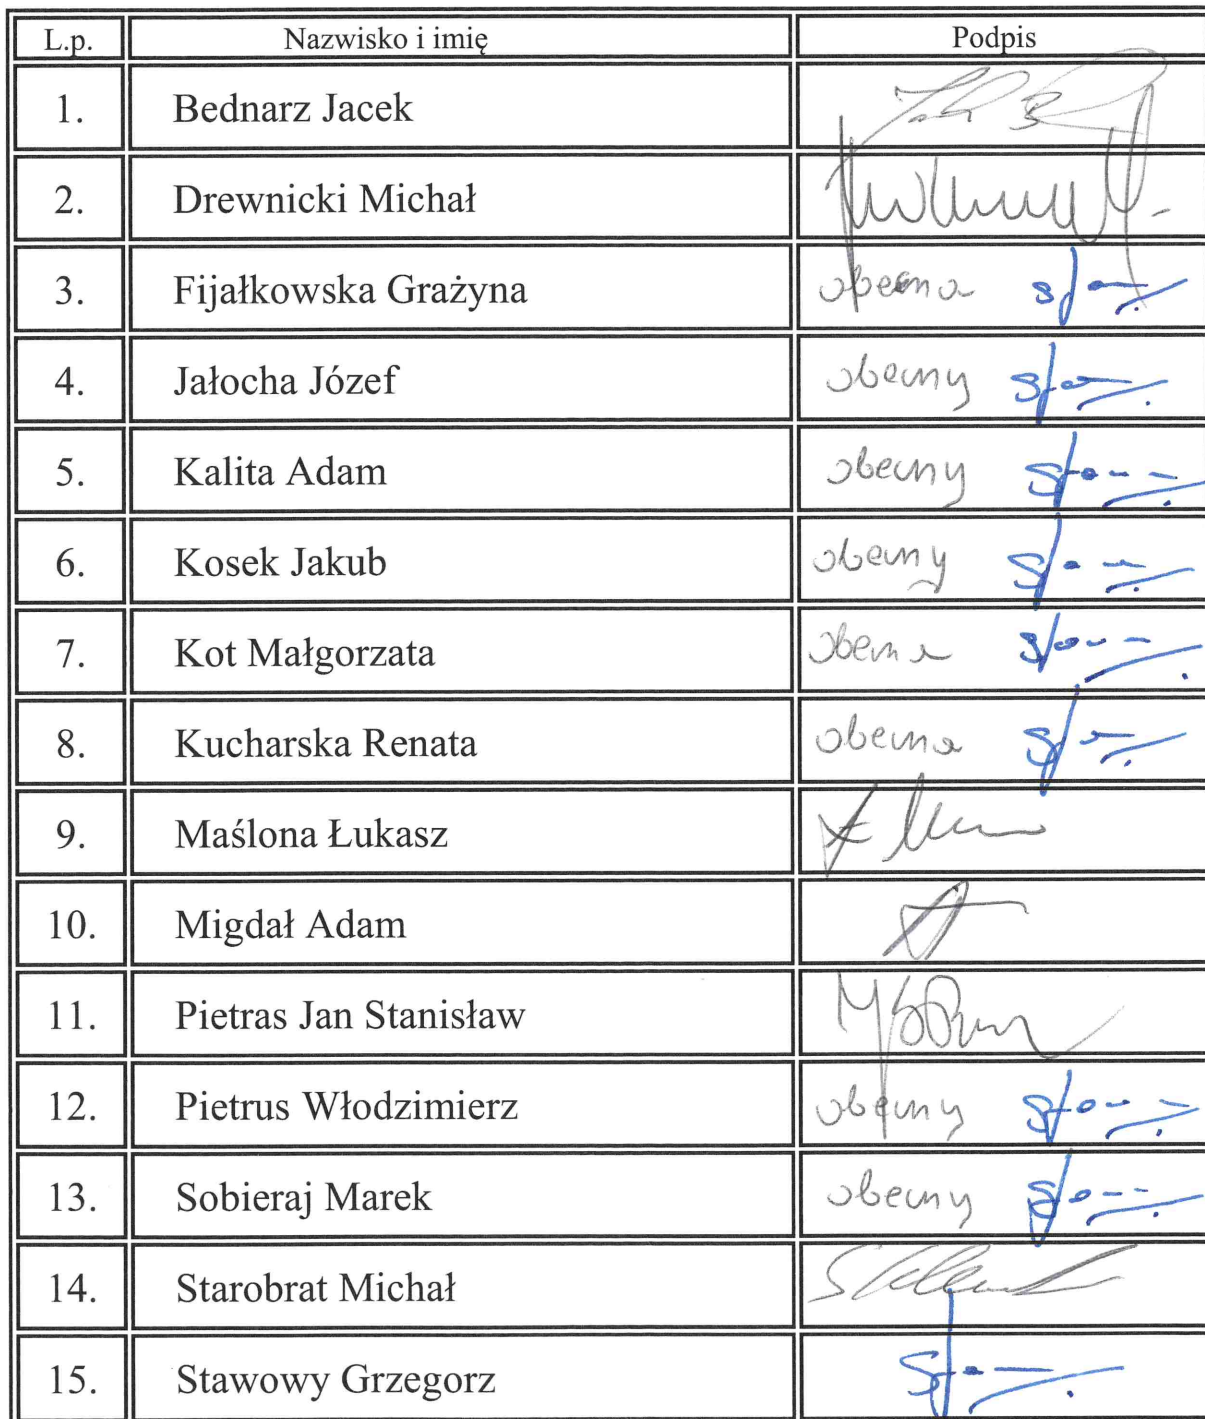 L.p. Nazwisko i imię Podpis
1. Bednarz Jacek
2. Drewnicki Michał
3. Fijałkowska Grażyna obecna
4. Jałocha Józef obecny
5. Kalita Adam obecny
6. Kosek Jakub obecny
7. Kot Małgorzata obecna
8. Kucharska Renata obecna
9. Maślona Łukasz
10. Migdał Adam
11. Pietras Jan Stanisław
12. Pietrus Włodzimierz obecny
13. Sobieraj Marek obecny
14. Starobrat Michał
15. Stawowy Grzegorz